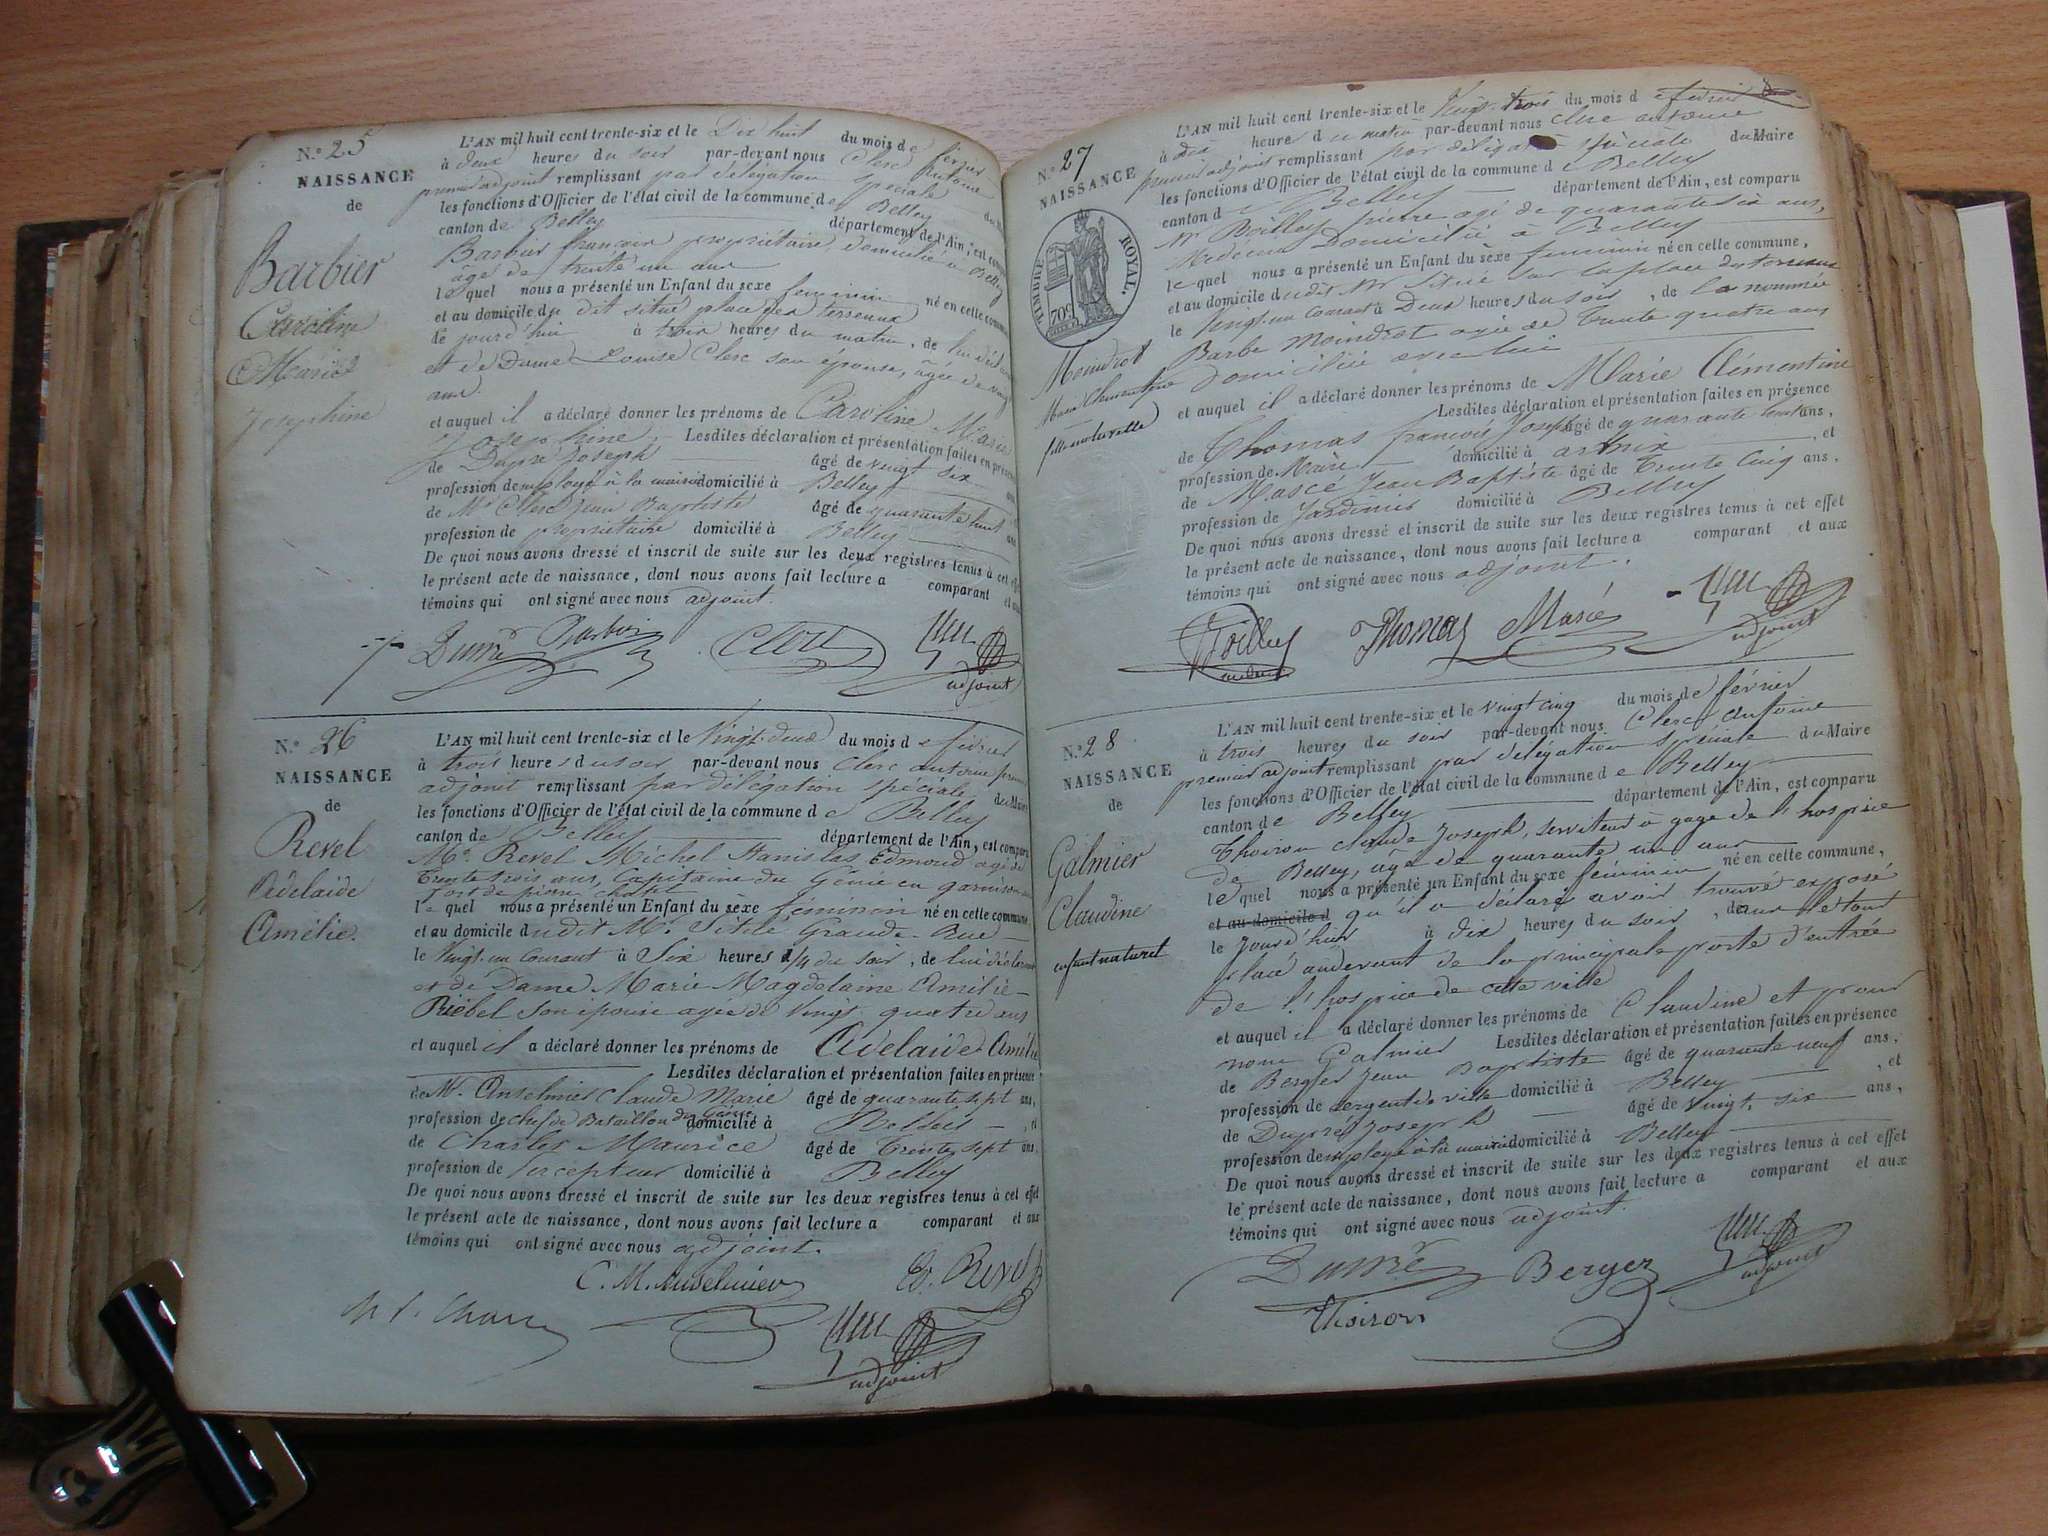 N.° 25
NAISSANCE
de
Barbier
Caroline
Marie
Josephine
L'AN mil huit cent trente-six et le Dix huit du mois de février
à deux heures du soir par-devant nous Clerc Antoine
premier adjoint remplissant par délégation spéciale du
les fonctions d'Officier de l'état civil de la commune de Belley
canton de Belley département de l'Ain, est
Barbier françois propriétaire domicilié à Belley
âgé de trente un ans
lequel nous a présenté un Enfant du sexe feminin né en cette
et au domicile du dit situé place des terreaux
le jourd'hui à trois heures du matin, de lui
et de Dame Louise Clerc son épouse, âgée de
ans.
et auquel il a déclaré donner les prénoms de Caroline Marie
Josephine Lesdites déclaration et présentation faites en
de Dupré Joseph âgé de vingt six
profession de employé à la mairie domicilié à Belley
de Mr Clerc Jean Baptiste âgé de quarante huit ans
profession de propriétaire domicilié à Belley
De quoi nous avons dressé et inscrit de suite sur les deux registres tenus à cet
le présent acte de naissance, dont nous avons fait lecture a comparant et aux
témoins qui ont signé avec nous adjoint.
Dupré Barbier Clerc
adjoint
N.° 26
NAISSANCE
de
Revel
Adelaide
Amélie.
L'AN mil huit cent trente-six et le Vingt-deux du mois de février
à trois heures du soir par-devant nous Clerc antoine premier
adjoint remplissant par délégation spéciale du Maire
les fonctions d'Officier de l'état civil de la commune de Belley
canton de Belley département de l'Ain, est comparu
Mr. Revel Michel Stanislas Edmond agé de
trente trois ans, Capitaine du Génie en garnison au
fort de pierre chatel
lequel nous a présenté un Enfant du sexe féminin né en cette commune
et au domicile dudit Mr. Situé Grande-Rue
le Vingt-un Courant à Six heures 1/4 du soir, de lui déclarant
et de Dame Marie Magdelaine Amélie
Riebel son épouse agée de Vingt quatre ans
et auquel il a déclaré donner les prénoms de Adelaide Amélie
Lesdites déclaration et présentation faites en présence
de Mr. Anselmier Claude Marie âgé de quarante sept ans,
profession de chef de Bataillon du Génie domicilié à Belley, et
de Charles Maurice âgé de trente sept ans,
profession de percepteur domicilié à Belley
De quoi nous avons dressé et inscrit de suite sur les deux registres tenus à cet effet
le présent acte de naissance, dont nous avons fait lecture a comparant et aux
témoins qui ont signé avec nous adjoint.
C. M. Anselmier E. Revel
adjoint
N.° 27
NAISSANCE
TIMBRE ROYAL.
70c
Moindrot
Marie Clementine
fille naturelle
L'AN mil huit cent trente-six et le Vingt-trois du mois de février
à dix heures du matin par-devant nous clerc antoine
premier adjoint remplissant par délégation spéciale du Maire
les fonctions d'Officier de l'état civil de la commune de Belley
canton de Belley département de l'Ain, est comparu
Mr Boilley pierre agé de quarante six ans,
Medecin Domicilié à Belley
lequel nous a présenté un Enfant du sexe feminin né en cette commune,
et au domicile dudit Mr Situé sur la place des terreaux
le Vingt-un Courant à Deux heures du soir, de la nommée
Barbe Moindrot agée de trente quatre ans
domiciliée avec lui
et auquel il a déclaré donner les prénoms de Marie Clémentine
Lesdites déclaration et présentation faites en présence
de Thomas françois Joseph âgé de quarante ans,
profession de Maire domicilié à, et
de Mascé Jean Baptiste âgé de trente Cinq ans.
profession de Jardinier domicilié à Belley
De quoi nous avons dressé et inscrit de suite sur les deux registres tenus à cet effet
le présent acte de naissance, dont nous avons fait lecture a comparant et aux
témoins qui ont signé avec nous adjoint.
Boilley Thomas Mascé
adjoint
N.° 28
NAISSANCE
de
Galmier
Claudine
enfant naturel
L'AN mil huit cent trente-six et le vingt cinq du mois de février
à trois heures du soir par-devant nous Clerc Antoine
premier adjoint remplissant par délégation spéciale du Maire
les fonctions d'Officier de l'état civil de la commune de Belley
canton de Belley département de l'Ain, est comparu
Thoiron claude Joseph, serviteur à gage de l'hospice
de Belley, âgé de quarante un ans
lequel nous a présenté un Enfant du sexe féminin né en cette commune,
et au domicile d qu'il a déclaré avoir trouvé exposé
le jourd'hier à dix heures du soir, dans le tour
placé au devant de la principale porte d'entrée
de l'hospice de cette ville
et auquel il a déclaré donner les prénoms de Claudine et pour
nom Galmier Lesdites déclaration et présentation faites en présence
de Berger Jean Baptiste âgé de quarante neuf ans,
profession de sergent de ville domicilié à Belley, et
de Dupré Joseph âgé de vingt six ans,
profession de employé à la mairie domicilié à Belley
De quoi nous avons dressé et inscrit de suite sur les deux registres tenus à cet effet
le présent acte de naissance, dont nous avons fait lecture a comparant et aux
témoins qui ont signé avec nous adjoint.
Dupré Berger
adjoint
Thoiron